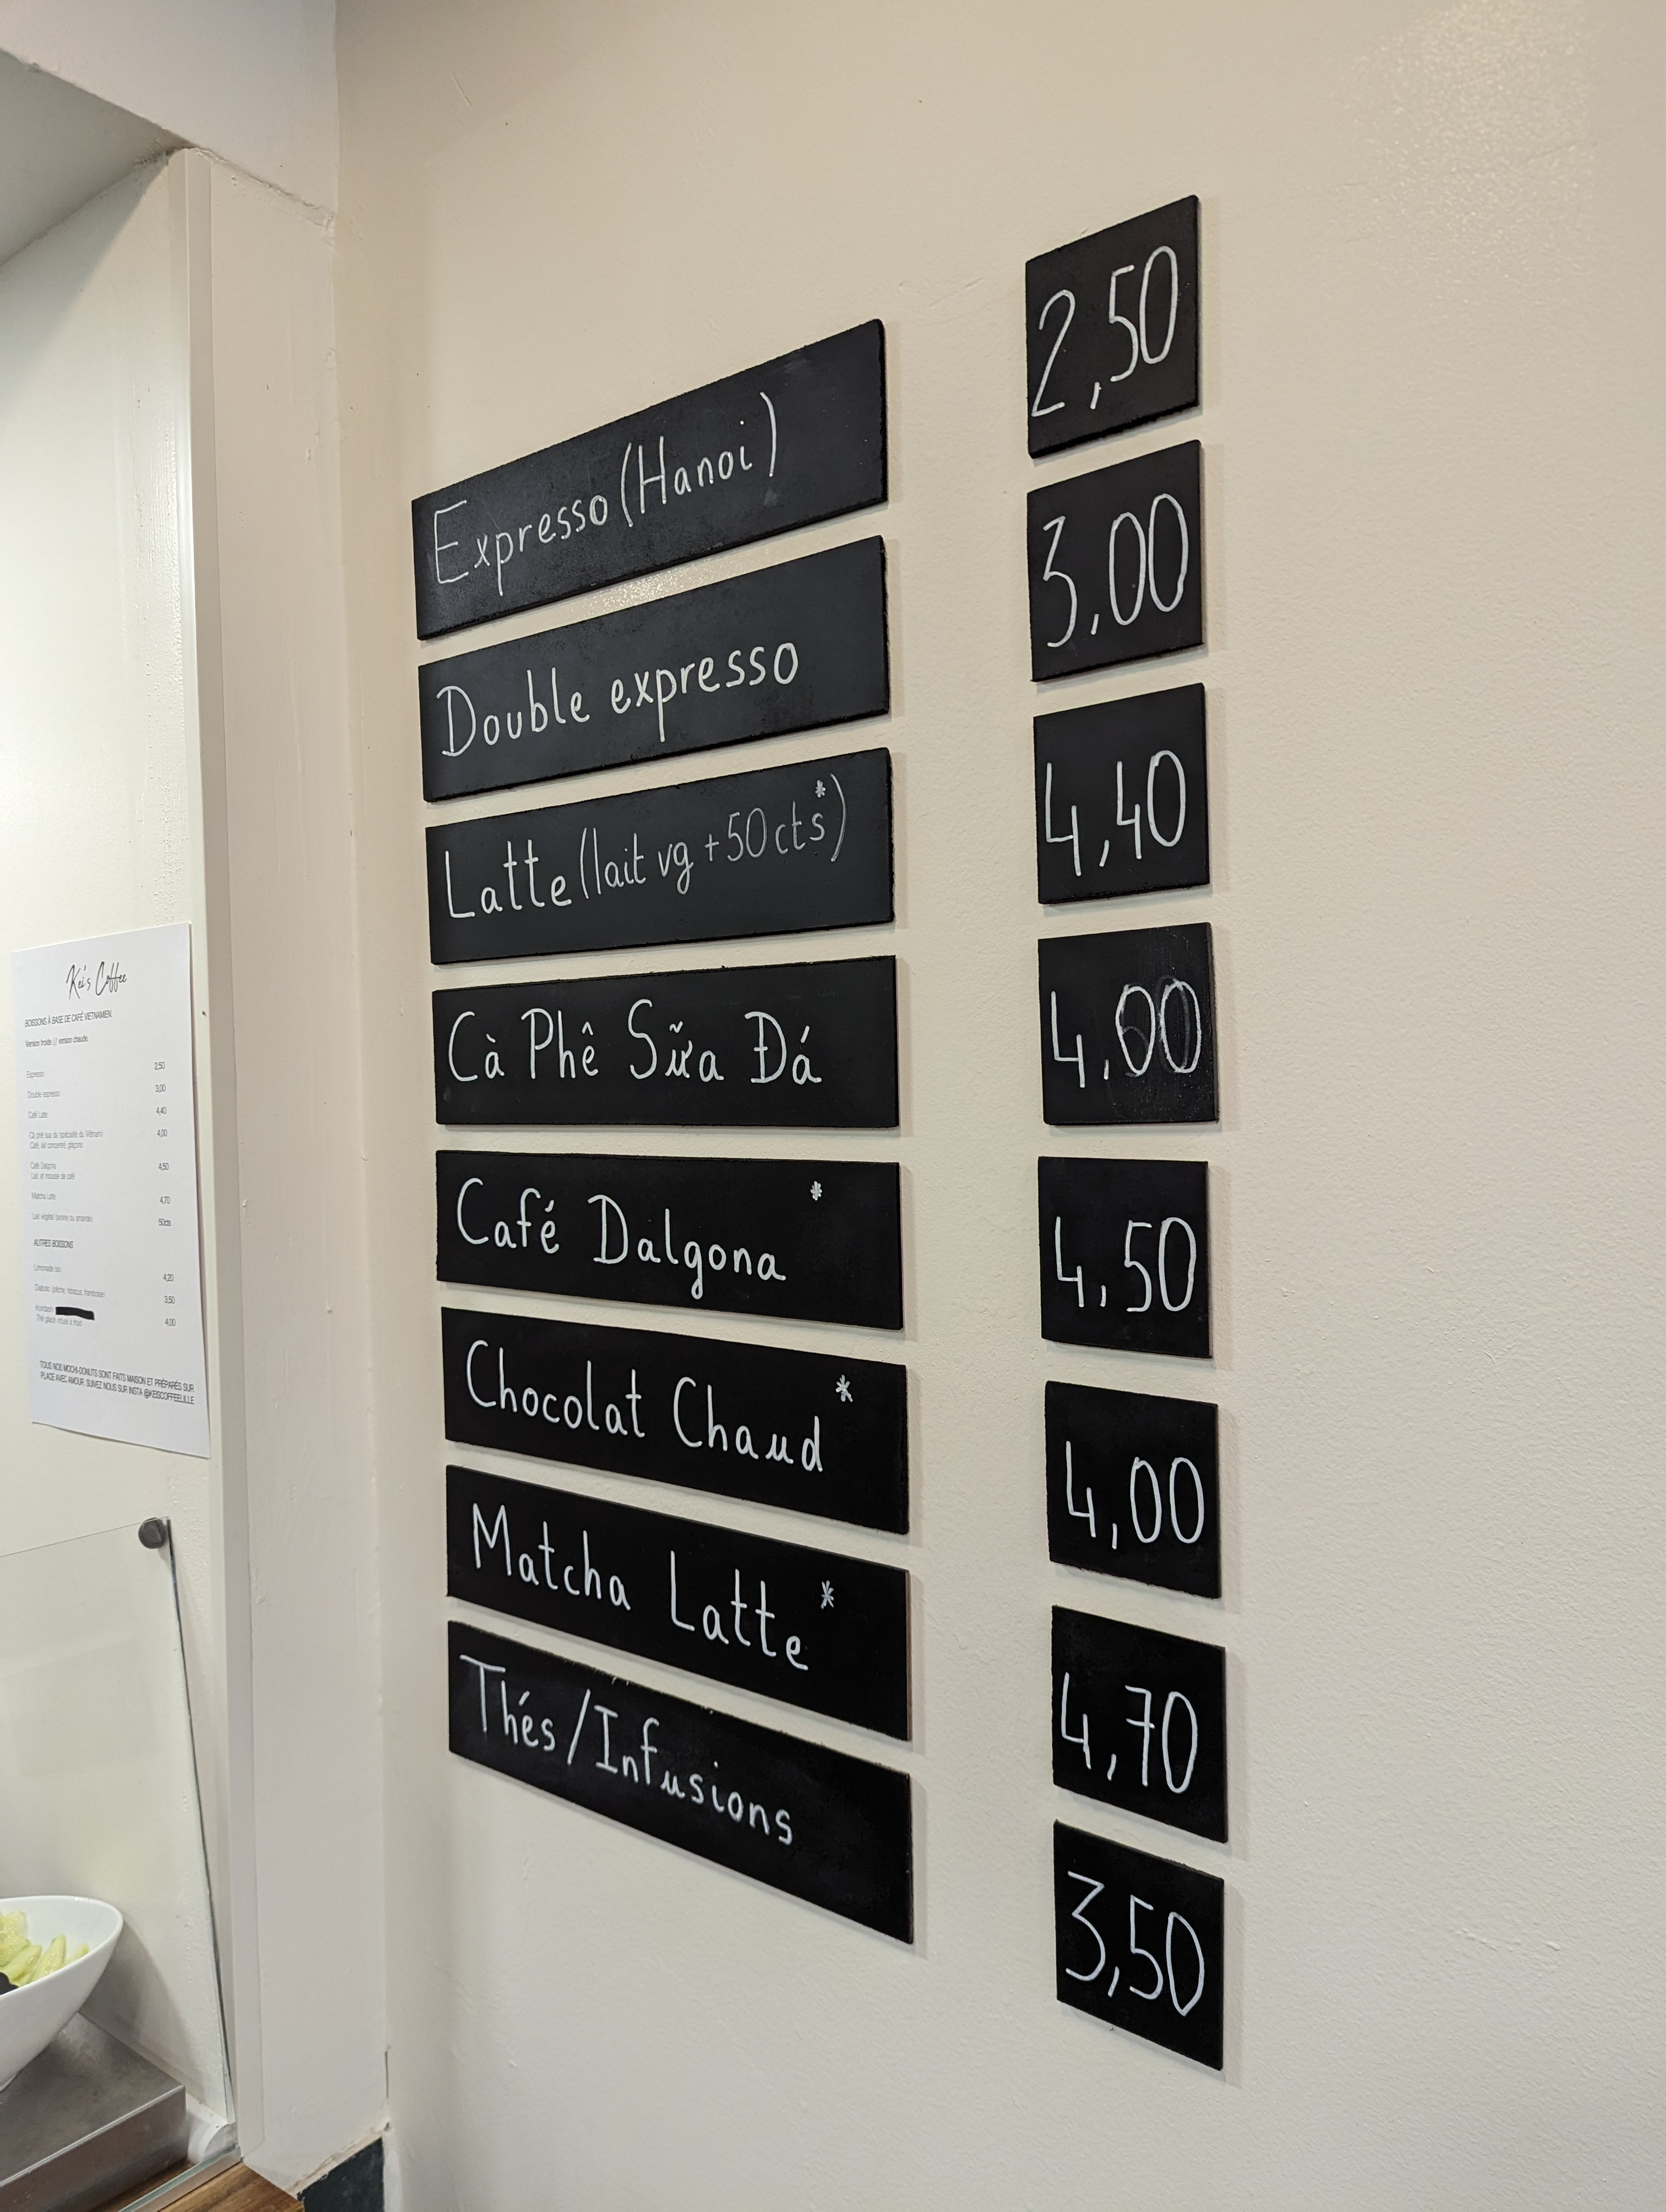 Expresso (Hanoi) 2,50
Double expresso 3,00
Latte (lait vg +50cts*) 4,40
Cà Phê Sữa Đá 4,00
Café Dalgona * 4,50
Chocolat Chaud * 4,00
Matcha Latte * 4,70
Thés/Infusions 3,50
Kei's Coffee
BOISSONS À BASE DE CAFÉ VIETNAMIEN.
Version froide // version chaude.
Espresso 2,50
Double espresso 3,00
Café Latte 4,40
Cà phê sua da (spécialité du Vietnam) 4,00
Café, lait concentré, glaçons
Café Dalgona 4,50
Lait et mousse de café
Matcha Latte 4,70
Lait végétal (avoine ou amande) 50cts
AUTRES BOISSONS
Limonade bio 4,20
Diabolo (pêche, hibiscus, framboise) 3,50
Thé glacé infusé à froid 4,00
TOUS NOS MOCHI-DONUTS SONT FAITS MAISON ET PRÉPARÉS SUR
PLACE AVEC AMOUR. SUIVEZ NOUS SUR INSTA @KEISCOFFEELILLE